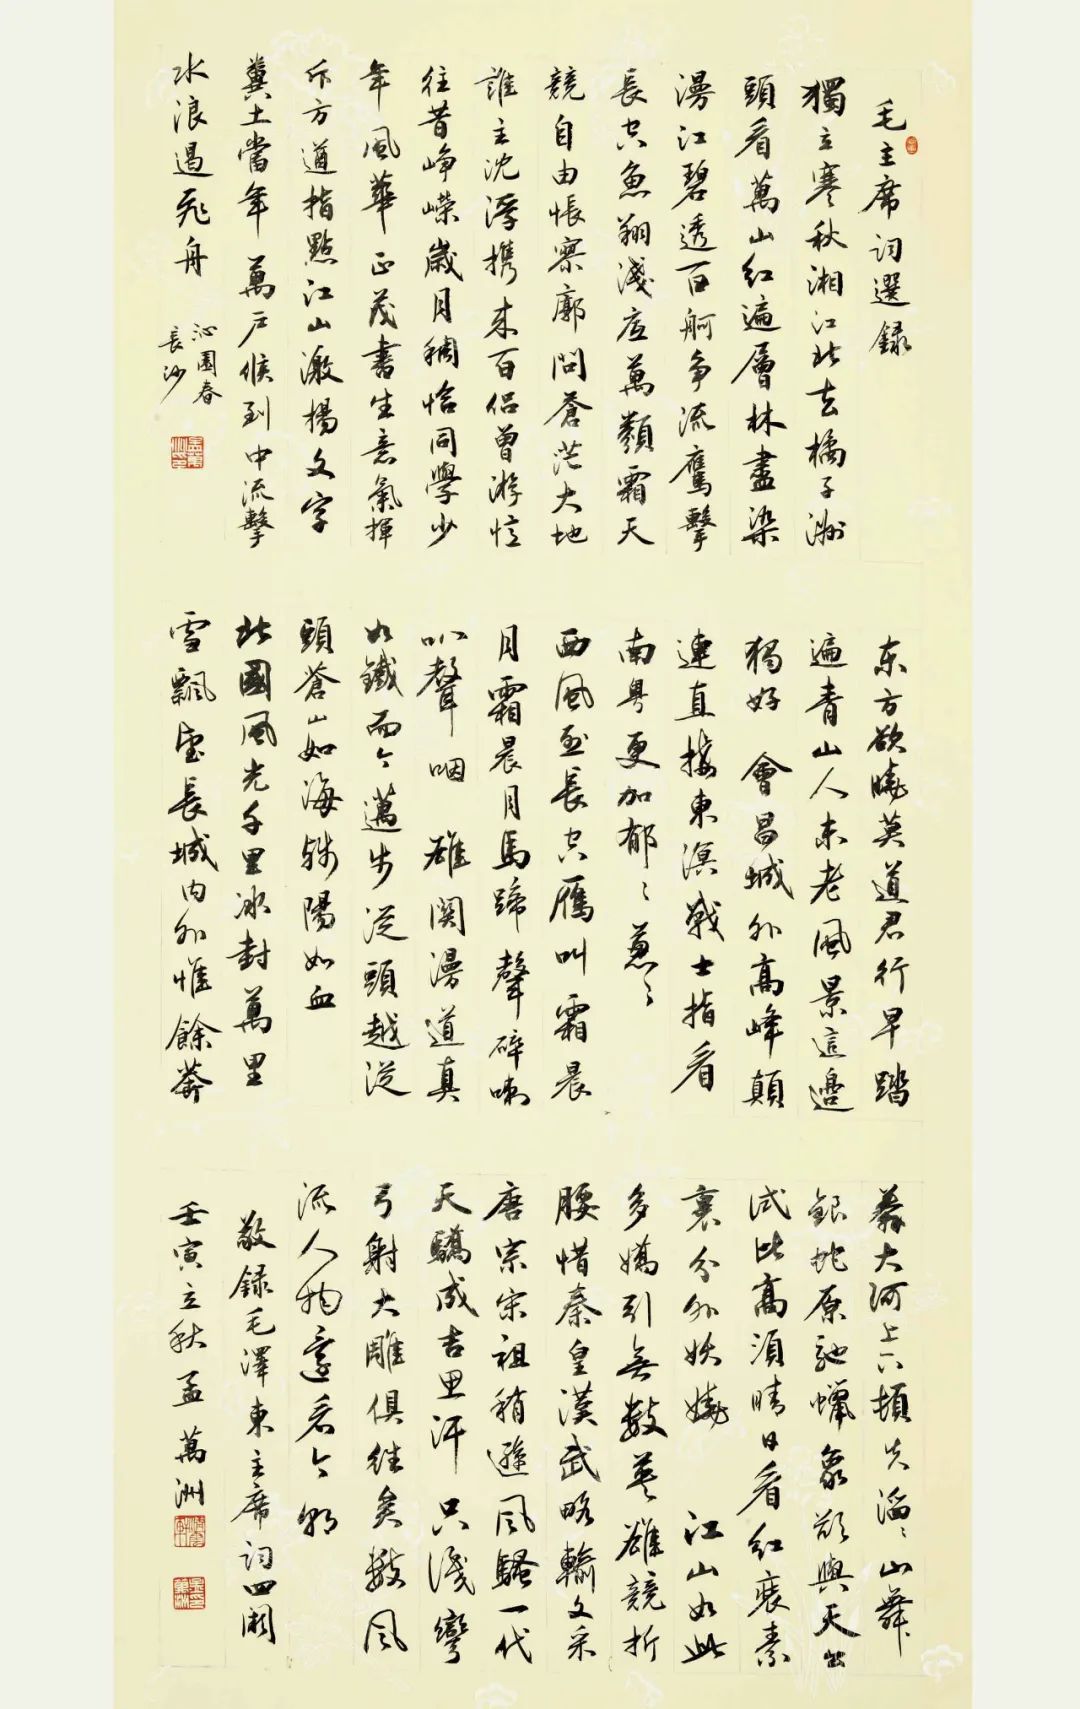 毛主席词選録
獨立寒秋湘江北去橘子洲
頭看萬山紅遍層林盡染
漫江碧透百舸争流鷹擊
長空魚翔淺底萬類霜天
競自由悵寥廓問蒼茫大地
誰主沈浮携来百侣曾游憶
往昔峥嵘歲月稠恰同學少
年風華正茂書生意氣揮
斥方遒指點江山激揚文字
糞土當年萬户侯到中流擊
水浪遏飛舟
沁園春
長沙
东方欲曉莫道君行早踏
遍青山人未老風景這邊
獨好 會昌城外高峰顛
連直接東溟戰士指看
南粤更加郁〻葱〻
西風烈長空雁叫霜晨
月霜晨月馬蹄聲碎喇
叭聲咽 雄関漫道真
如鐵而今邁步從頭越從
頭蒼山如海殘陽如血
北國風光千里冰封萬里
雪飄望長城内外惟餘莽
莽大河上下頓失滔〻山舞
銀蛇原馳蠟象欲與天公
試比高須晴日看紅裝素
裹分外妖嬈 江山如此
多嬌引無數英雄競折
腰惜秦皇漢武略輸文采
唐宗宋祖稍遜風騷一代
天驕成吉思汗 只識彎
弓射大雕俱往矣數風
流人物還看今朝
敬録毛澤東主席词四阕
壬寅立秋孟萬洲